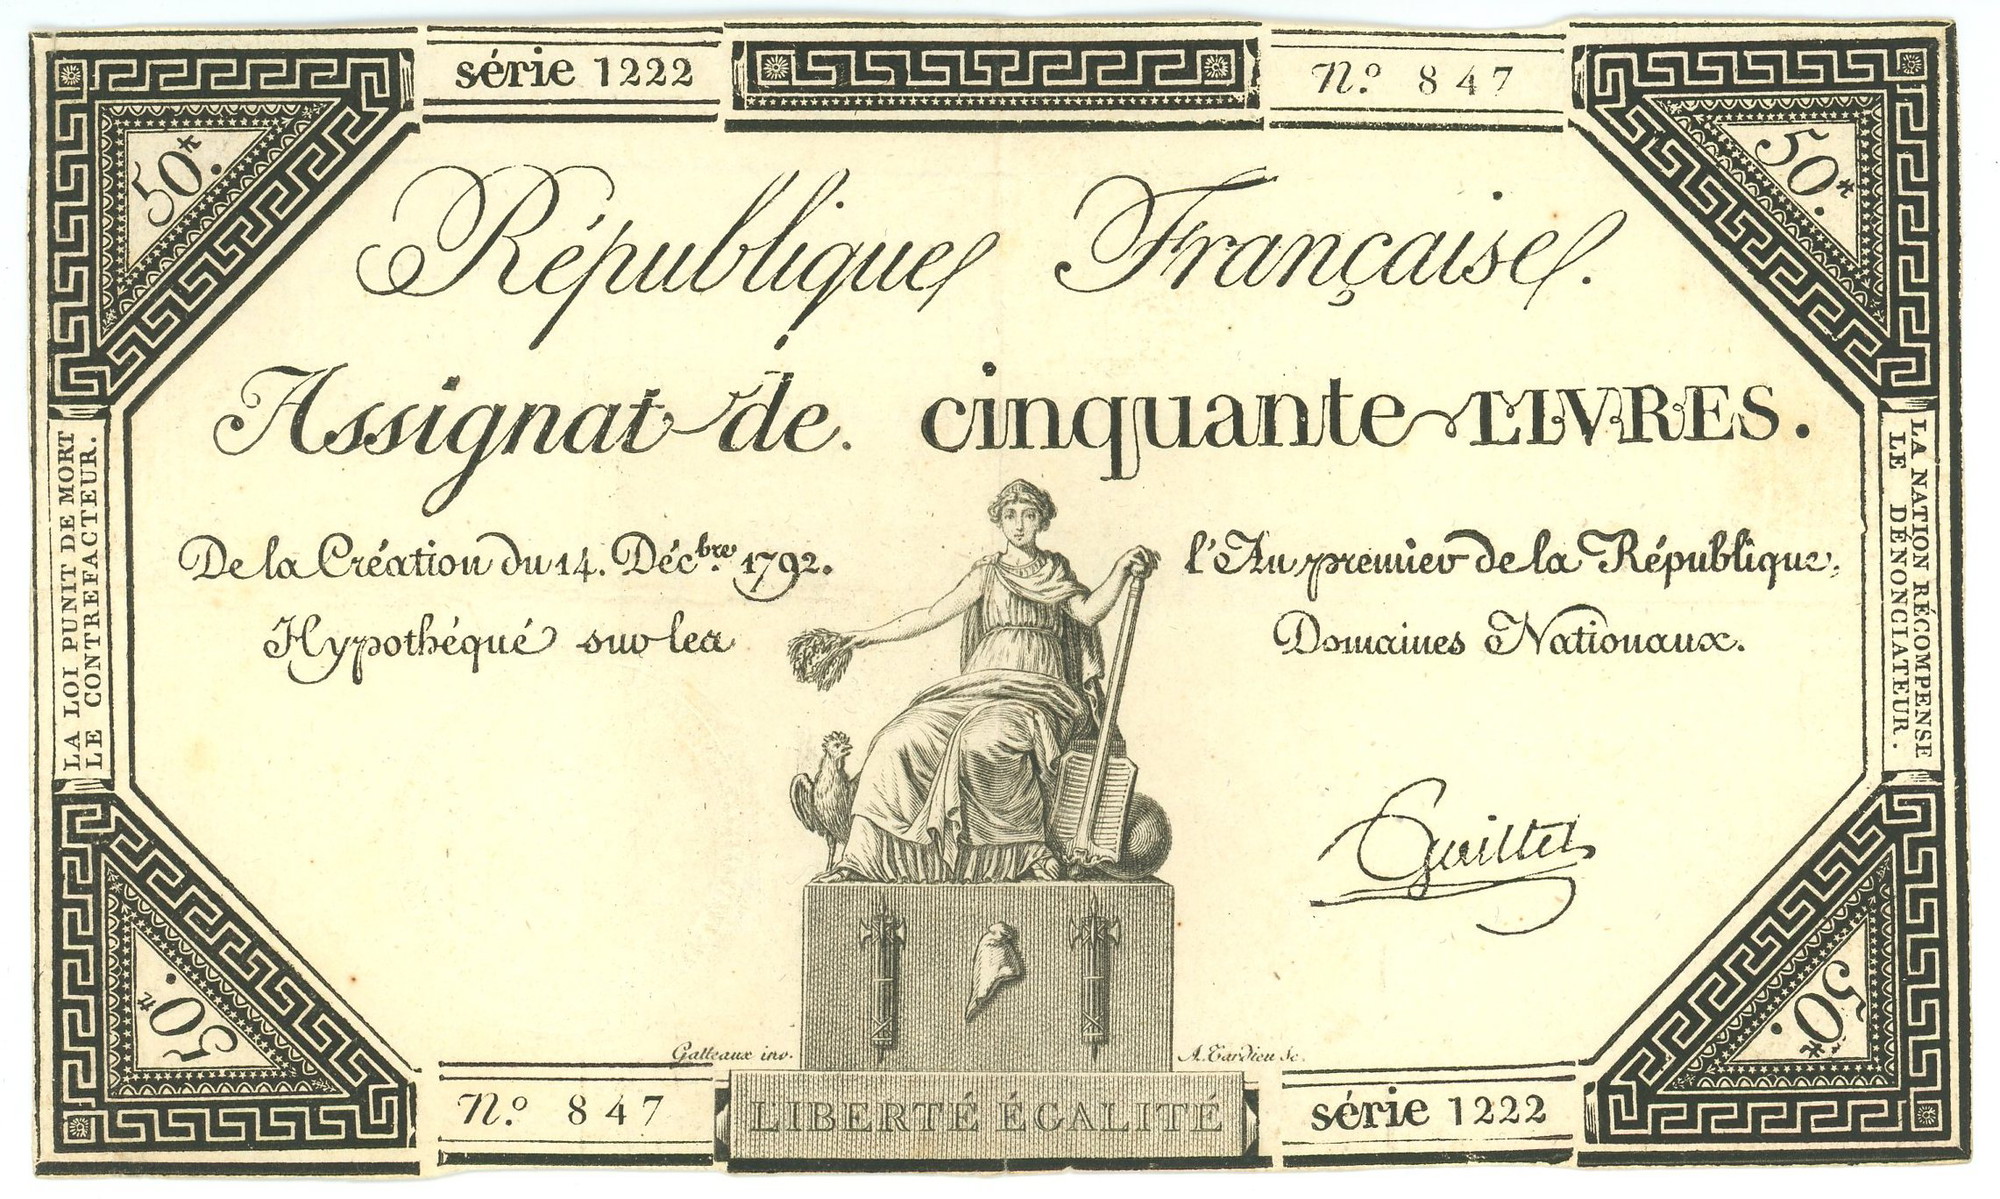 série 1222
Nº. 847
50tt.
50tt.
République Française.
Assignat de cinquante LIVRES.
De la Création du 14. Décbre. 1792.
l'An premier de la République,
Hypothéqué sur les
Domaines Nationaux.
LA LOI PUNIT DE MORT
LE CONTREFACTEUR.
LA NATION RÉCOMPENSE
LE DÉNONCIATEUR.
Guillet
Gatteaux inv.
A. Tardieu Sc.
50tt.
50tt.
Nº. 847
LIBERTÉ ÉGALITÉ
série 1222